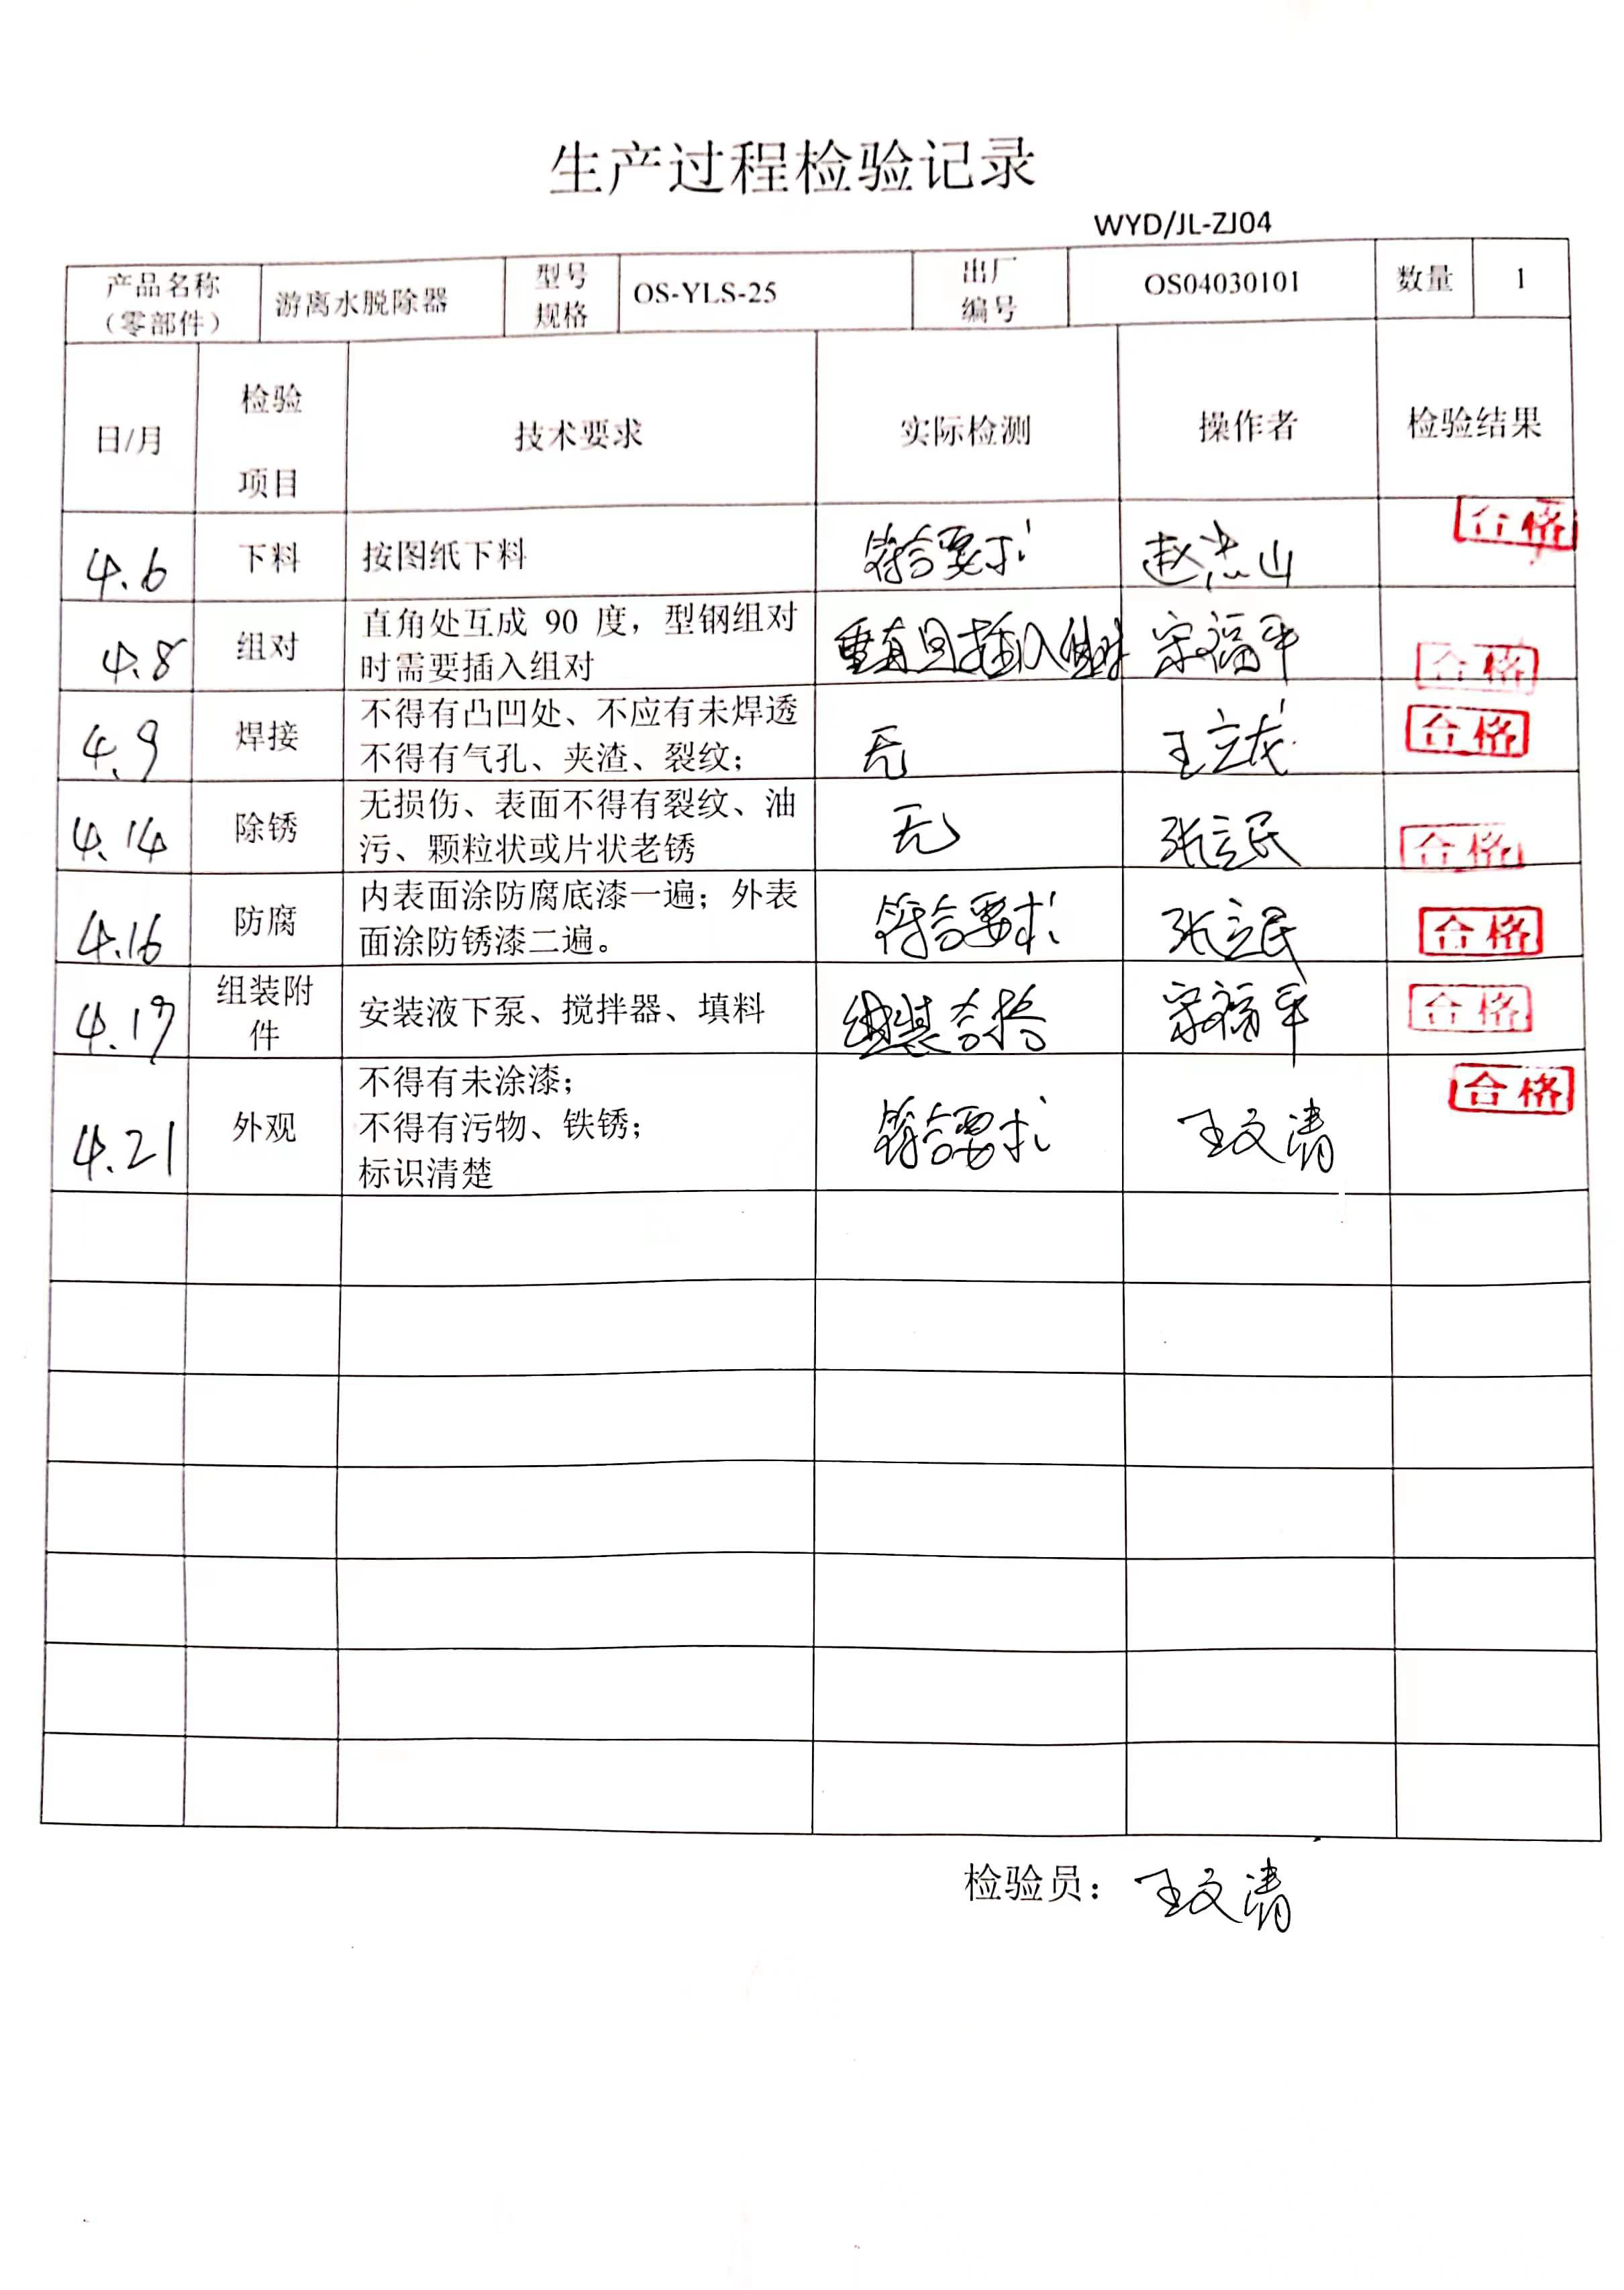 生产过程检验记录
WYD/JL-ZJ04
产品名称
（零部件）
游离水脱除器
型号
规格
OS-YLS-25
出厂
编号
OS04030101
数量
1
日/月
检验
项目
技术要求
实际检测
操作者
检验结果
4.6
下料
按图纸下料
符合要求
赵杰山
合格
4.8
组对
直角处互成 90 度，型钢组对
时需要插入组对
垂直且插入组对
宋福平
合格
4.9
焊接
不得有凸凹处、不应有未焊透
不得有气孔、夹渣、裂纹；
无
王立龙
合格
4.14
除锈
无损伤、表面不得有裂纹、油
污、颗粒状或片状老锈
无
张立民
合格
4.16
防腐
内表面涂防腐底漆一遍；外表
面涂防锈漆二遍。
符合要求
张立民
合格
4.19
组装附
件
安装液下泵、搅拌器、填料
组装合格
宋福平
合格
4.21
外观
不得有未涂漆；
不得有污物、铁锈；
标识清楚
符合要求
王文清
合格
检验员：王文清